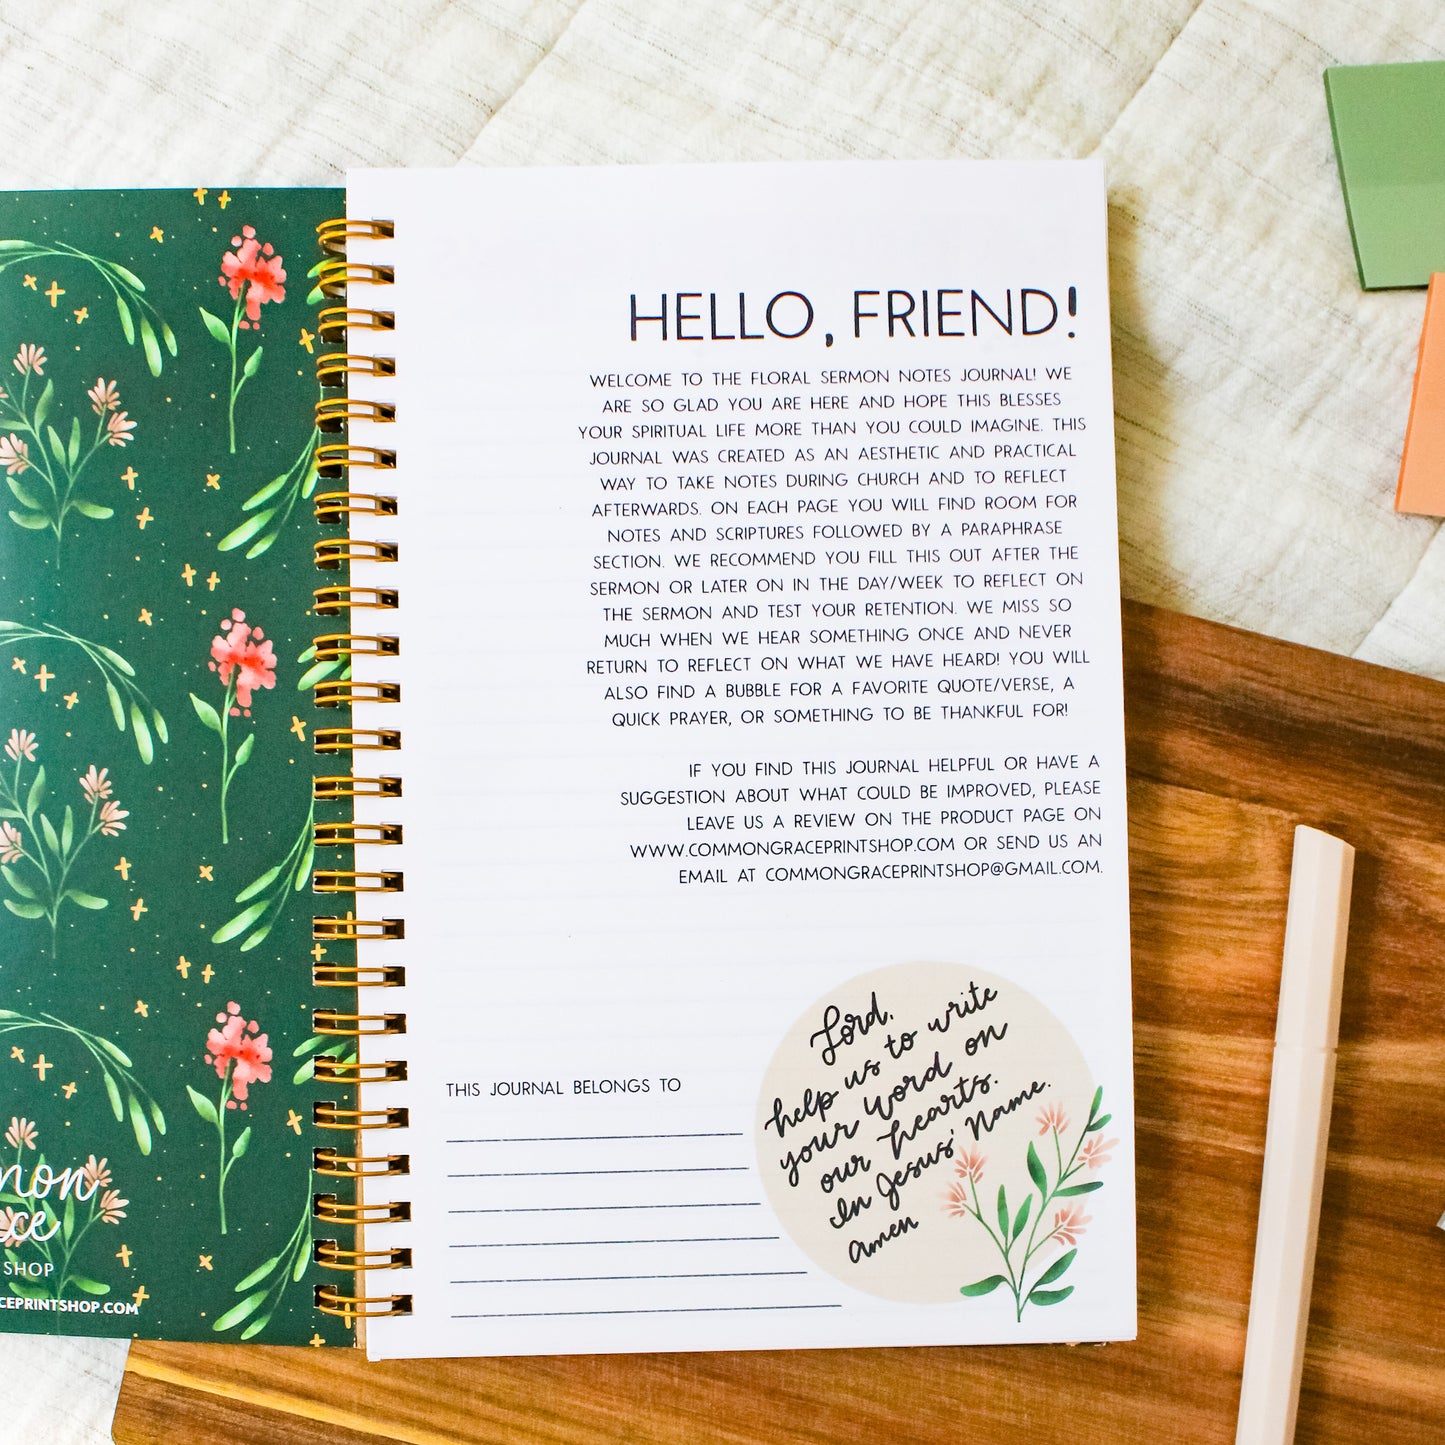 HELLO, FRIEND!
WELCOME TO THE FLORAL SERMON NOTES JOURNAL! WE
ARE SO GLAD YOU ARE HERE AND HOPE THIS BLESSES
YOUR SPIRITUAL LIFE MORE THAN YOU COULD IMAGINE. THIS
JOURNAL WAS CREATED AS AN AESTHETIC AND PRACTICAL
WAY TO TAKE NOTES DURING CHURCH AND TO REFLECT
AFTERWARDS. ON EACH PAGE YOU WILL FIND ROOM FOR
NOTES AND SCRIPTURES FOLLOWED BY A PARAPHRASE
SECTION. WE RECOMMEND YOU FILL THIS OUT AFTER THE
SERMON OR LATER ON IN THE DAY/WEEK TO REFLECT ON
THE SERMON AND TEST YOUR RETENTION. WE MISS SO
MUCH WHEN WE HEAR SOMETHING ONCE AND NEVER
RETURN TO REFLECT ON WHAT WE HAVE HEARD! YOU WILL
ALSO FIND A BUBBLE FOR A FAVORITE QUOTE/VERSE, A
QUICK PRAYER, OR SOMETHING TO BE THANKFUL FOR!
IF YOU FIND THIS JOURNAL HELPFUL OR HAVE A
SUGGESTION ABOUT WHAT COULD BE IMPROVED, PLEASE
LEAVE US A REVIEW ON THE PRODUCT PAGE ON
WWW.COMMONGRACEPRINTSHOP.COM OR SEND US AN
EMAIL AT COMMONGRACEPRINTSHOP@GMAIL.COM.
THIS JOURNAL BELONGS TO
Lord,
help us to write
your word on
our hearts.
In Jesus' Name.
amen
mon
ce
SHOP
CEPRINTSHOP.COM